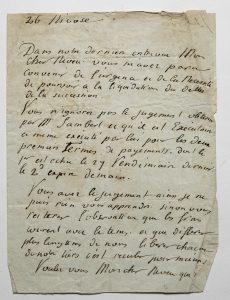 26 Nivose
Dans notre dernier entrevue Mon
cher Neveu vous m'avez paru
convenir de l'urgence et de la Necessité
de pourvoir à la liquidation du
de la succession
Vous n'ignorez pas le jugement obtenu
par M. Lambert et qu'il est Executoire
a meme executé par lui pour les deux
premiers termes de payements, dont le
1er est echu le 29 Vendemiaire dernier
le 2e expire demain.
Vous avez le jugement ainsi je ne
puis rien vous apprendre sinon vous
reiterer l'observation que les frais
avec le tems, et que differer
plus longtems de nous liberer chacun
de notre c'est reculer pour
Voulez vous Mon cher Neveu que